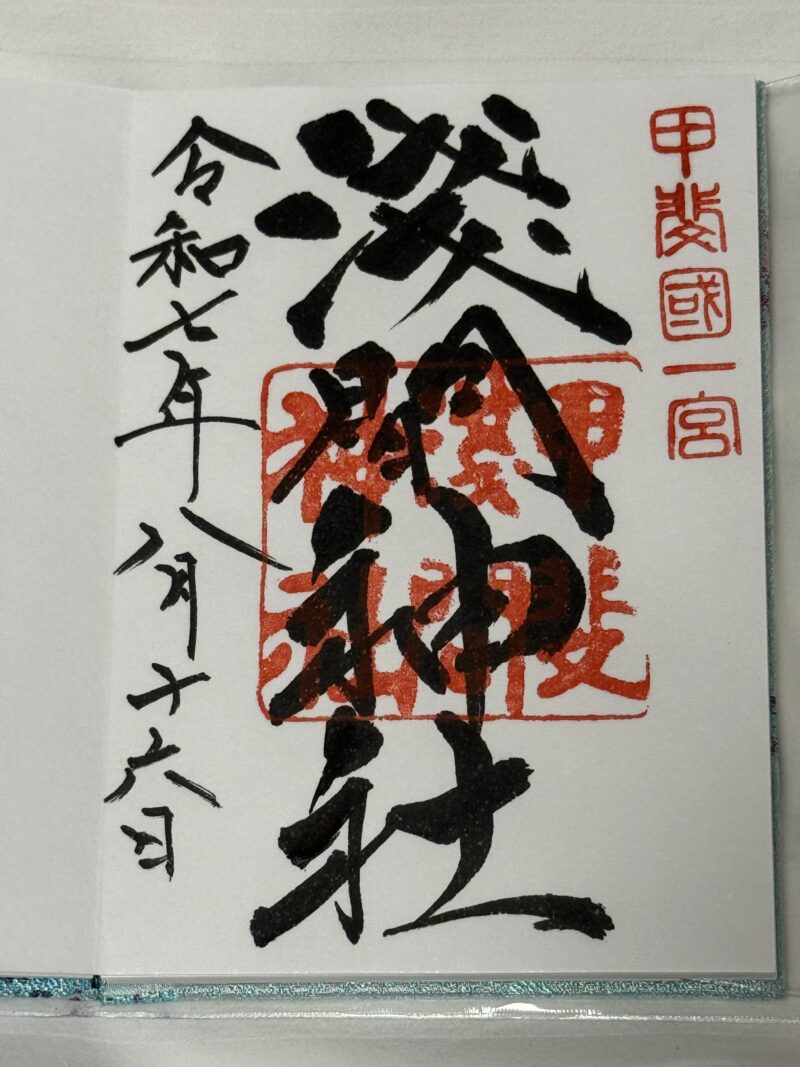 甲斐國一宮
淺間神社
甲斐
淺間
神社
令和七年八月十六日